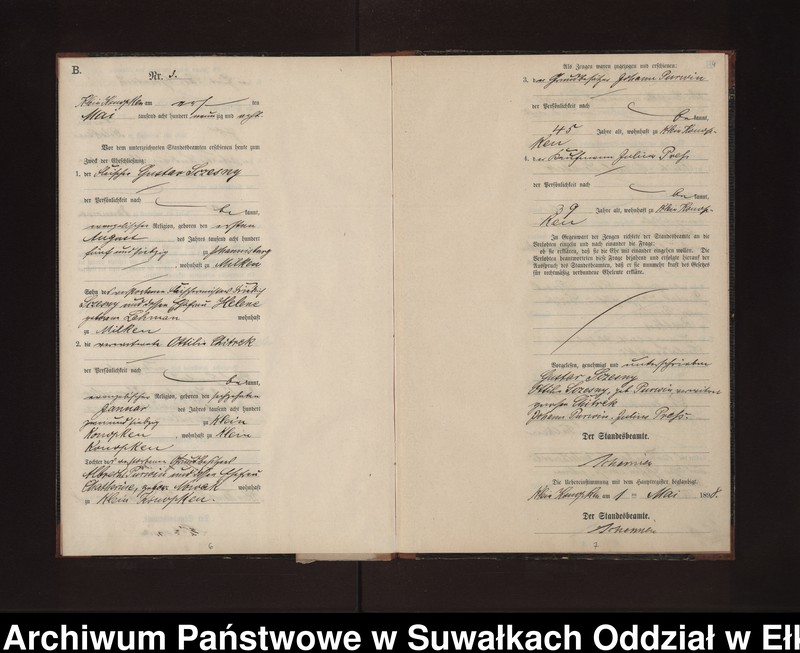 B.
Nr. 3.
Klein Konopken am ersten
Mai tausend acht hundert neunzig und acht.
Vor dem unterzeichneten Standesbeamten erschienen heute zum
Zweck der Eheschließung:
1. der Gustav Sczesny
der Persönlichkeit nach
be kannt,
evangelischer Religion, geboren den ersten
August des Jahres tausend acht hundert
fünf und siebzig zu Johannisburg
, wohnhaft zu Milken
Sohn des verstorbenen Friedrich
Sczesny und dessen Ehefrau Helene
geborene Lehman wohnhaft
zu Milken
2. die verwitwete Ottilie Chitrek
der Persönlichkeit nach
be kannt,
evangelischer Religion, geboren den sechzehnten
Januar des Jahres tausend acht hundert
zwei und siebzig zu Klein
Konopken , wohnhaft zu Klein
Konopken
Tochter des verstorbenen Grundbesitzers
Albrecht Purwin und dessen Ehefrau
Catharine, geborene Nowak wohnhaft
zu Klein Konopken.
6
Als Zeugen waren zugezogen und erschienen:
3. der Grundbesitzer Johann Purwin
der Persönlichkeit nach
be kannt,
45 Jahre alt, wohnhaft zu Klein Konop-
ken
4. der Kaufmann Julius Preß
der Persönlichkeit nach
be kannt,
39 Jahre alt, wohnhaft zu Klein Konop-
ken
In Gegenwart der Zeugen richtete der Standesbeamte an die
Verlobten einzeln und nach einander die Frage:
ob sie erklären, daß sie die Ehe mit einander eingehen wollen. Die
Verlobten beantworteten diese Frage bejahend und erfolgte hierauf der
Ausspruch des Standesbeamten, daß er sie nunmehr kraft des Gesetzes
für rechtmäßig verbundene Eheleute erkläre.
Vorgelesen, genehmigt und unterschrieben
Gustav Sczesny
Ottilie Sczesny, geb. Purwin verwitwete
gewesene Chitrek
Johann Purwin. Julius Preß.
Der Standesbeamte.
Die Uebereinstimmung mit dem Hauptregister beglaubigt.
Klein Konopken am 1 ten Mai 1898.
Der Standesbeamte.
7
Archiwum Państwowe w Suwałkach Oddział w Ełk